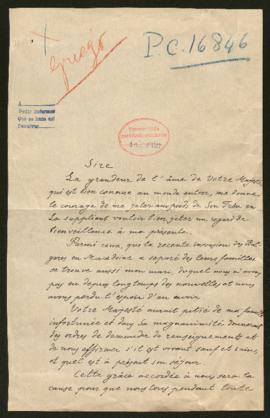 Griego
P.C. 16846
Sire
La grandeur de l'âme de Votre Majesté
qui est bien connue au monde entier, me donne
le courage de me jeter aux pieds de Son Trône en
La suppliant vouloir bien jeter un regard de
bienveillance à ma présente.
Parmi ceux, que la récente invasion des Bul
gares en Macédoine a séparé des leurs familles
se trouve aussi mon mari, duquel nous n'avons
pas eu depuis longtemps des nouvelles et nous
avons perdu l'espoir d'en avoir
Votre Majesté aurait pitié de ma famille
infortunée et dans Sa magnanimité donnerait
des ordres de demander de renseignements et
de nous affirmer s'il est vivant sauf et sain,
et quel est à présent son séjour.
Cette grâce accordée à nous sera la
cause pour que nous tous pendant toute